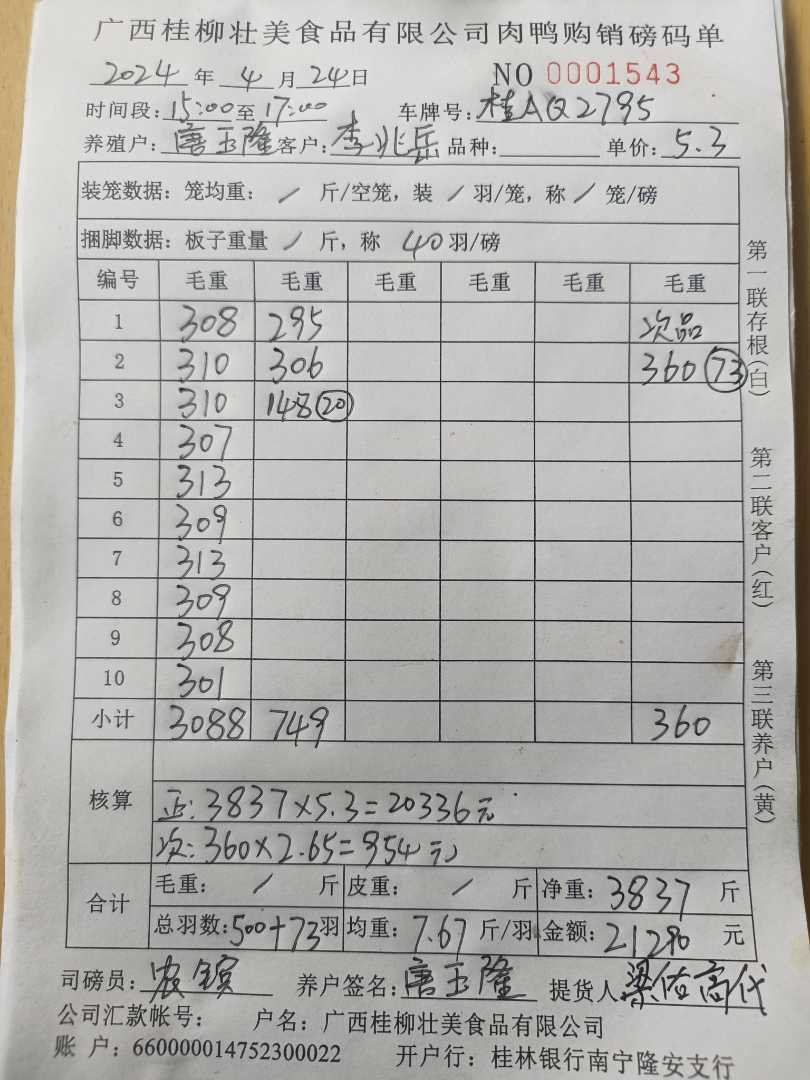 广西桂柳壮美食品有限公司肉鸭购销磅码单
2024 年 4 月 24 日 NO 0001543
时间段: 15:00 至 17:00 车牌号: 桂AQ2795
养殖户: 唐玉隆 客户: 李兆岳 品种: 单价: 5.3
装笼数据: 笼均重: / 斤/空笼, 装 / 羽/笼, 称 / 笼/磅
捆脚数据: 板子重量 / 斤, 称 40 羽/磅
编号 毛重 毛重 毛重 毛重 毛重 毛重
1 308 295 次品
2 310 306 360 73
3 310 148 20
4 307
5 313
6 309
7 313
8 309
9 308
10 301
小计 3088 749 360
核算
正: 3837×5.3=20336元
次: 360×2.65=954元
合计
毛重: / 斤 皮重: / 斤 净重: 3837 斤
总羽数: 500+73 羽 均重: 7.67 斤/羽 金额: 21290 元
司磅员: 农 养户签名: 唐玉隆 提货人 梁佑高代
公司汇款帐号: 户名: 广西桂柳壮美食品有限公司
账 户: 660000014752300022 开户行: 桂林银行南宁隆安支行
第一联存根(白)
第二联客户(红)
第三联养户(黄)